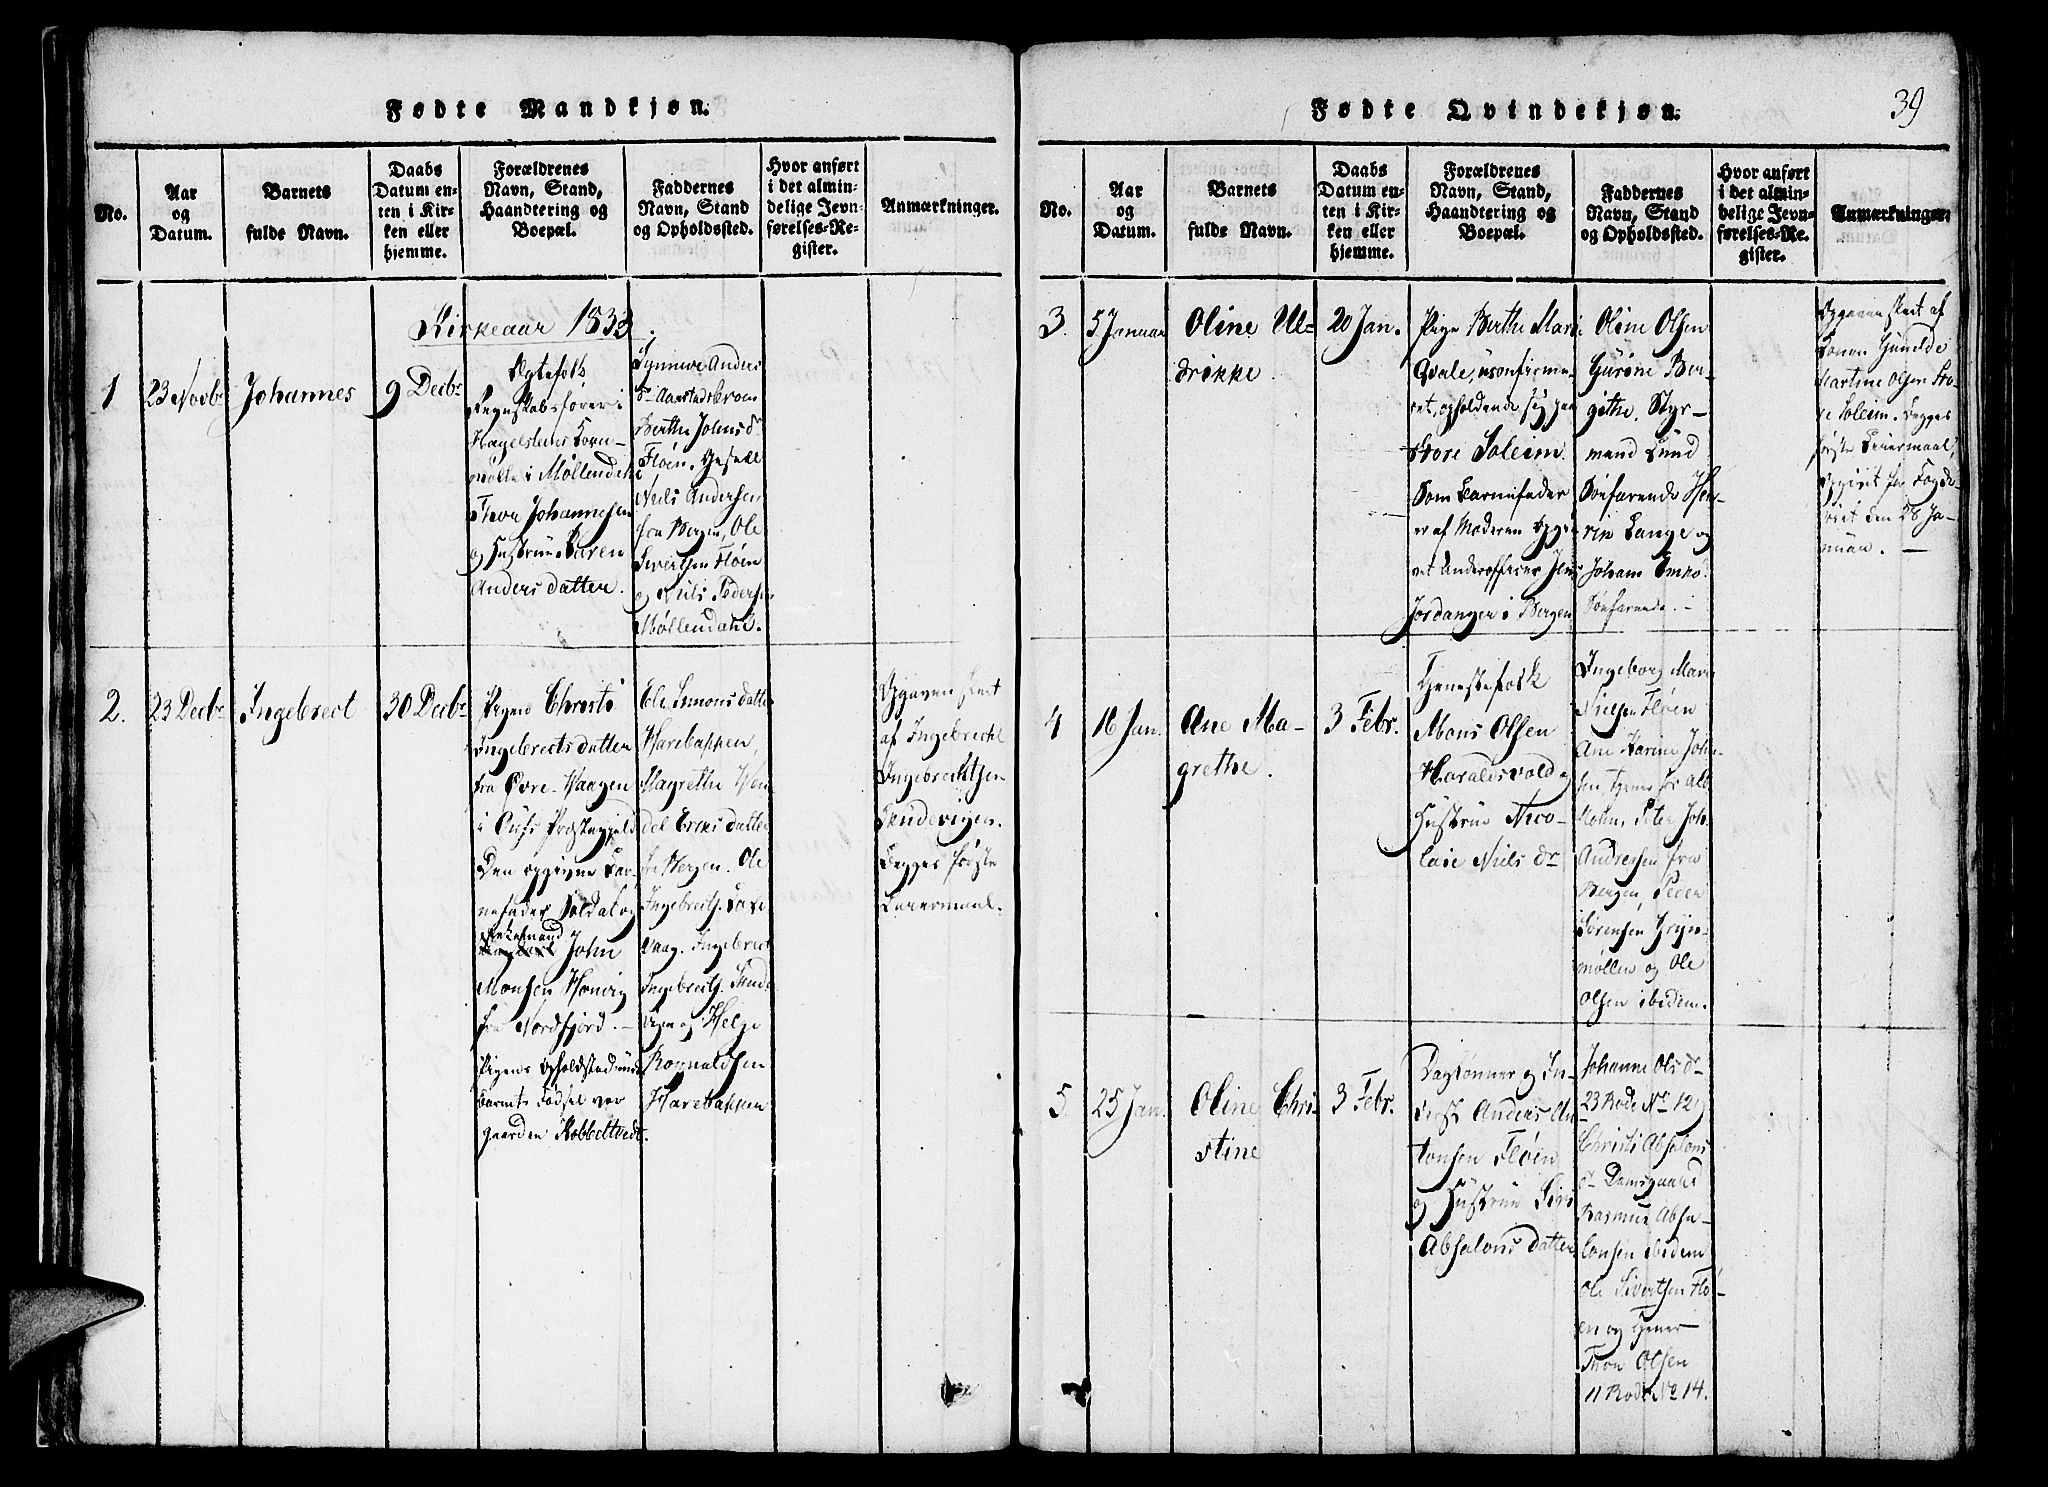 Fødte Mandkjøn.
No.
Aar
og
Datum.
Barnets
fulde Navn.
Daabs
Datum en-
ten i Kir-
ken eller
hjemme.
Forældrenes
Navn, Stand,
Haandtering og
Boepæl.
Faddernes
Navn, Stand
og Opholdssted.
Hvor anført
i det almin-
delige Jevn-
førelses-Re-
gister.
Anmærkninger.
Kirkeaar 1833.
1
23 Novbr
Johannes
9 Decbr
Ægtefolk
Regnskabsfører i
Hagelsteens Korn-
mølle i Møllendahl
Thor Johannesen
og Hustrue Karen
Andersdatter.
Synneve Anders
Dr Aarstadsbroen
Berthe Johns Dr
Fløen. Gesell
Niels Andersen
fra Bergen, Ole
Sivertsen Fløen
og Niels Pedersen
Møllendahl.
2.
23 Decbr
Ingebrect
30 Decbr
Pigen Christi
Ingebrectsdatter
fra Øvre-Waagen
i Ouss Præstegjeld
Den opgivne Bar-
nefader Soldat og
Enkemand
John
Monsen
fra Nordfjord.
Pigens Opholdsted under
Barnets Fødsel var
gaarden Kobbeltvedt.
Ole Simonsdatter
Harebakken,
Magrethe Wen-
del Ericsdatter
fra Bergen. Ole
Ingebrects. Øvre
Vaag. Ingebrect
Ingebrects. Sande
vigen og Helge
Romualdsen
Harebakken
Opgaven skeet
af Ingebrecht
Ingebrechtsen
Sandevigen.
Begges første
Leiermaal.
Fødte Qvindekjøn.
39
No.
Aar
og
Datum.
Barnets
fulde Navn.
Daabs
Datum en-
ten i Kir-
ken eller
hjemme.
Forældrenes
Navn, Stand,
Haandtering og
Boepæl.
Faddernes
Navn, Stand
og Opholdssted.
Hvor anført
i det almin-
delige Jevn-
førelses-Re-
gister.
Anmærkninger.
3.
5 Januar
Oline Ul-
drikke.
20 Jan.
Pige Berthe Marie
Qvale, ukonfirme-
ret, opholdende sig paa
Store Soleim.
Som Barnefader
er af Moderen opgi-
vet Underofficeer
Jordanger i Bergen
Oline Olsen
Gurine Ber-
githe. Styr-
mand Lund
Søefarende Hen-
rik Lange og
Johann
Søefarende.
Opgaven skeet af
Konen Gunilde
Martine Olsen Sto-
re Soleim. Begges
første Leiermaal,
opgivet for Fogde-
riet den 28 Ja-
nuar.
4
16 Jan.
Ane Ma-
grethe.
3 Febr.
Tjenestefolk
Mons Olsen
Haraldsvold og
Hustrue Nico-
laie Niels Dr
Ingeborg Marie
Nielsen Fløen
Ane Karine John-
sen, tjener for
Holm, Peter Joh.
Andersen fra
Bergen, Peder
Sørensen Gryn-
møllen og Ole
Olsen ibidem.
5.
25 Jan.
Oline Chri-
stine
3 Febr.
Daglønner og In-
derst Anders An-
tonsen Fløen
og Hustrue Siri
Absalonsdatter
Johanne Ols Dr
23 Rode No 129
Christi Absalons
Dr Damsgaard
Rasmus Absa-
lonsen ibidem
Ole Sivertsen Flø-
en og Tjener
Thor Olsen
11 Rode No 14.